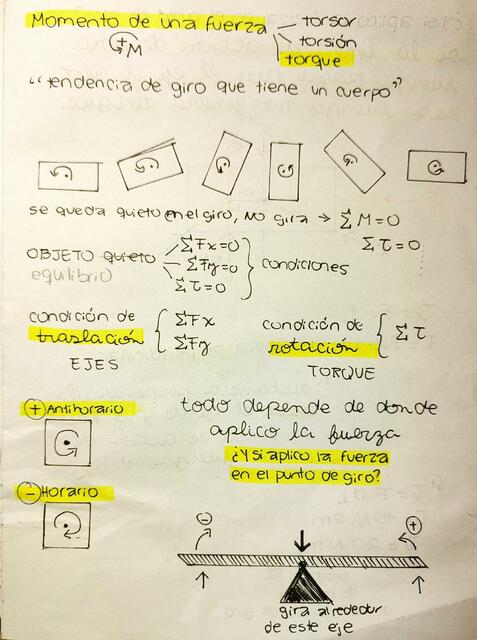 Momento de una fuerza
torsor
torsión
torque
+M
"tendencia de giro que tiene un cuerpo"
se queda quieto en el giro, NO gira → ΣM=0
Στ=0
OBJETO quieto
equilibrio
ΣFx=0
ΣFy=0
Στ=0
condiciones
condición de
traslación
EJES
ΣFx
ΣFy
condición de
rotación
TORQUE
Στ
+ Antihorario
todo depende de donde
aplico la fuerza
¿Y si aplico la fuerza
en el punto de giro?
- Horario
-
+
gira alrededor
de este eje